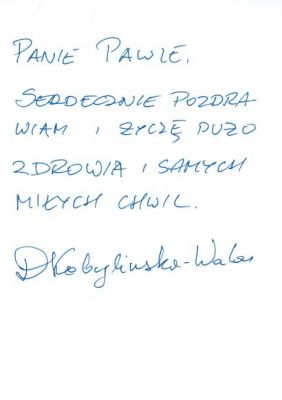 PANIE PAWLE.
SERDECZNIE POZDRA
WIAM I ŻYCZĘ DUŻO
ZDROWIA I SAMYCH
MIŁYCH CHWIL.
DKobylińska-Walas